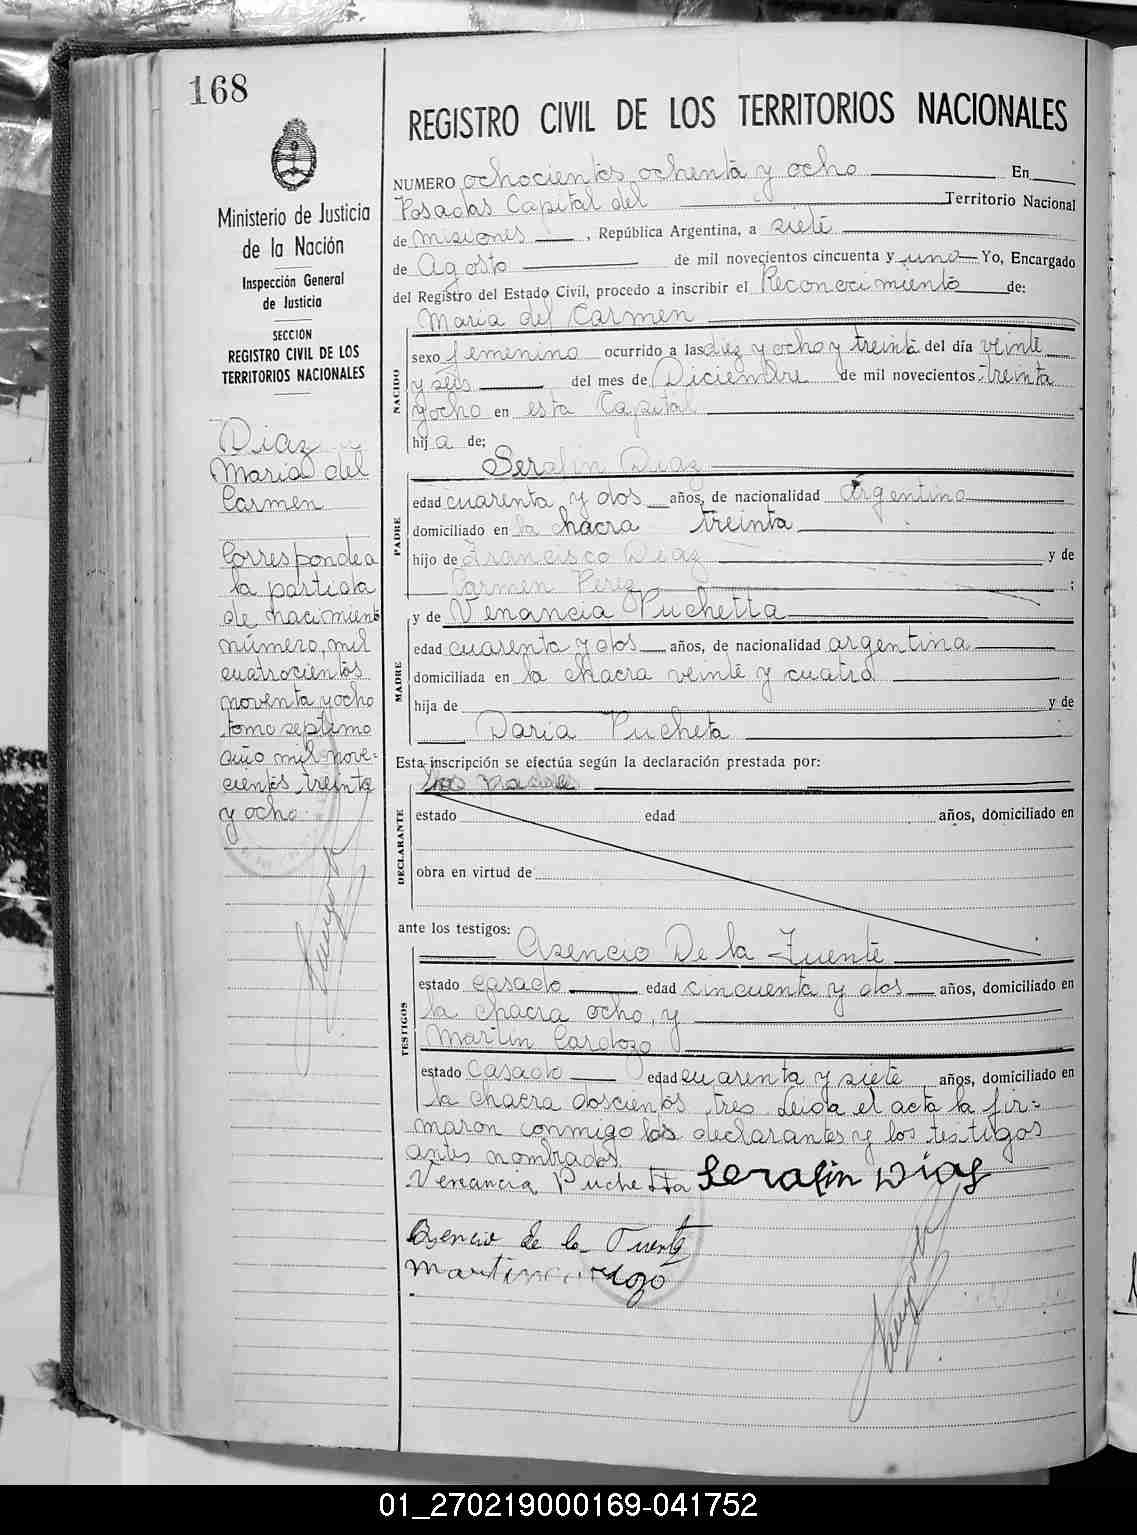 168
Ministerio de Justicia
de la Nación
Inspección General
de Justicia
SECCION
REGISTRO CIVIL DE LOS
TERRITORIOS NACIONALES
Diaz
Maria del
Carmen
Corresponde a
la partida
de nacimiento
número, mil
cuatrocientos
noventa y ocho
tomo septimo
año mil nove-
cientos treinta
y ocho
REGISTRO CIVIL DE LOS TERRITORIOS NACIONALES
NUMERO ochocientos ochenta y ocho En
Posadas Capital del Territorio Nacional
de Misiones, República Argentina, a siete
de Agosto de mil novecientos cincuenta y uno Yo, Encargado
del Registro del Estado Civil, procedo a inscribir el Reconocimiento de:
Maria del Carmen
NACIDO
sexo femenino ocurrido a las diez y ocho y treinta del día veinte
y seis del mes de Diciembre de mil novecientos treinta
y ocho en esta Capital
hija de;
Serafin Diaz
PADRE
edad cuarenta y dos años, de nacionalidad argentino
domiciliado en la chacra treinta
hijo de Francisco Diaz y de
Carmen Perez ;
y de Venancia Puchetta
MADRE
edad cuarenta y dos años, de nacionalidad argentina
domiciliada en la chacra veinte y cuatro
hija de y de
Daria Pucheta
Esta inscripción se efectúa según la declaración prestada por:
los padres
DECLARANTE
estado edad años, domiciliado en
obra en virtud de
ante los testigos:
Asencio De la Fuente
TESTIGOS
estado casado edad cincuenta y dos años, domiciliado en
la chacra ocho, y
Martin Cardozo
estado casado edad cuarenta y siete años, domiciliado en
la chacra doscientos tres. Leida el acta la fir-
maron conmigo los declarantes y los testigos
antes nombrados.
Venancia Puchetta Serafin Diaz
Asencio de la Fuente
Martin
01_270219000169-041752